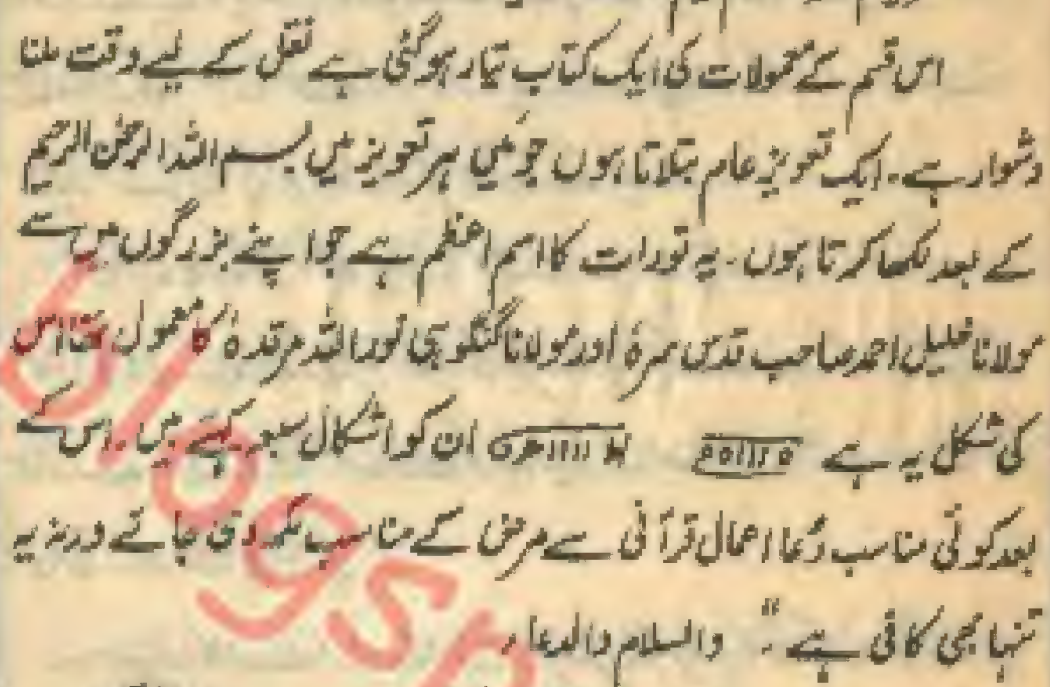 اس قسم کے معمولات کی ایک کتاب تیار ہوگئی ہے نقل کے لیے وقت ملنا
دشوار ہے۔ ایک تعویز عام بتلاتا ہوں جو میں ہر تعویز میں بسم اللہ الرحمٰن الرحیم
کے بعد لکھا کرتا ہوں۔ یہ تورات کا اسم اعظم ہے جو اپنے بزرگوں میں سے
مولانا خلیل احمد صاحب قدس سرہٗ اور مولانا گنگوہی نوراللہ مرقدہٗ کا معمول تھا اس
کی شکل یہ ہے ان کو اشکال سبعہ کہتے ہیں۔ اس کے
بعد کوئی مناسب دُعا اعمال قرآنی سے مرض کے مناسب لکھ دی جائے ورنہ یہ
تنہا بھی کافی ہے۔" والسلام والدعا،
blogsp